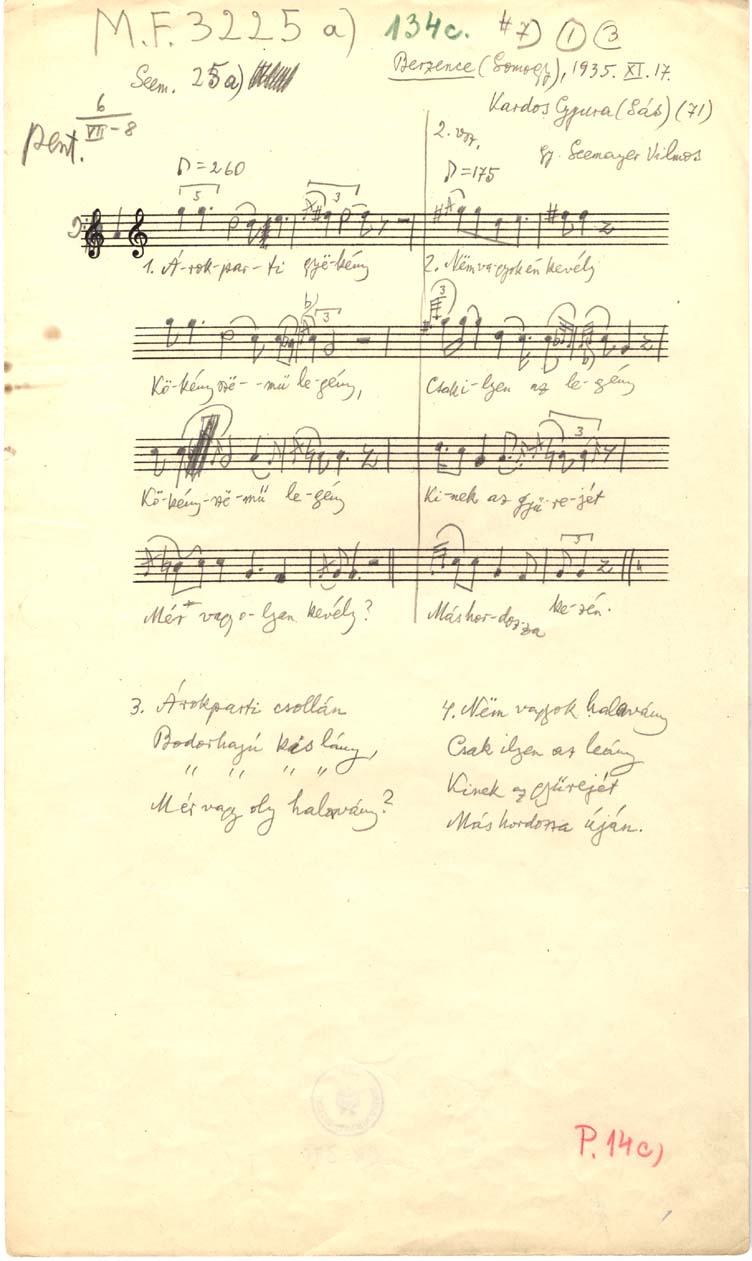 M.F. 3225 a) 134c. #7) 1 3
Seem. 25a)
Berzence (Somogy), 1935. XI. 17.
Kardos Gyura (Sáb) (71)
gy. Seemayer Vilmos
6
VII-8
pent.
♪=260
2. vsz.
♪=175
5
3
1. Á-rok-par-ti gyë-kény
2. Nëm va-gyok én kevély
3
3
Kö-kény szë--mű le-gény,
Csak i-lyen az le-gény
3
Kö-kény-szë-mű le-gény
Ki-nek az gyű-re-jét
3
Mér vagy o-lyan kevély?
Más hor-doz-za ke-zén.
3. Árokparti csollán
Bodorhajú kis lány,
〃 〃 〃 〃
Mér vagy oly halavány?
4. Nëm vagyok halavány
Csak ilyen az leány
Kinek az gyűrejét
Más hordozza úján.
P. 14c)